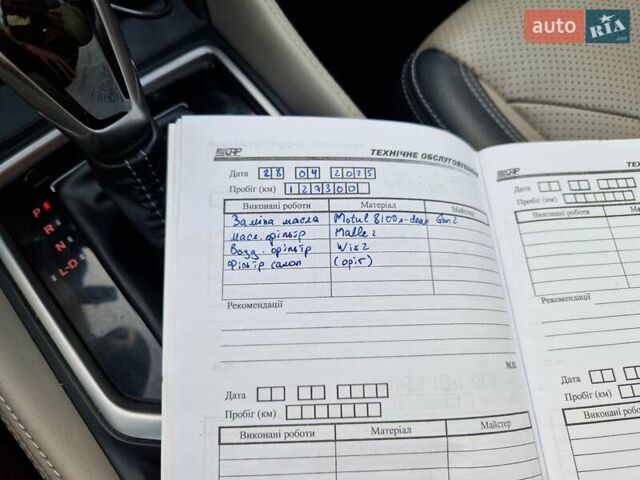 auto RIA
.com
P
R
N
L-D
ТЕХНІЧНЕ ОБСЛУГОВУВАННЯ
Дата 28 04 2025
Пробіг (км) 127300
Виконані роботи Матеріал Майстер
Заміна масла Motul 8100 x-clean Gen 2
масл. фільтр Malle 2
Возд. фільтр Wix 2
Фільтр салон (оріг)
Рекомендації
М.П.
Дата
Пробіг (км)
Виконані роботи Матеріал Майстер
ТЕ
Дата
Пробіг (км)
Виконані роботи Матер
Рекомендації
Дата
Пробіг (км)
Виконані роботи